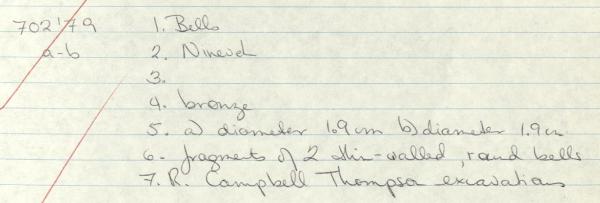 702'79 1. Bells
a-b 2. Nineveh
3.
4. bronze
5. a) diameter 1.9 cm b) diameter 1.9 cm
6. fragments of 2 thin-walled, round bells
7. R. Campbell Thompson excavations